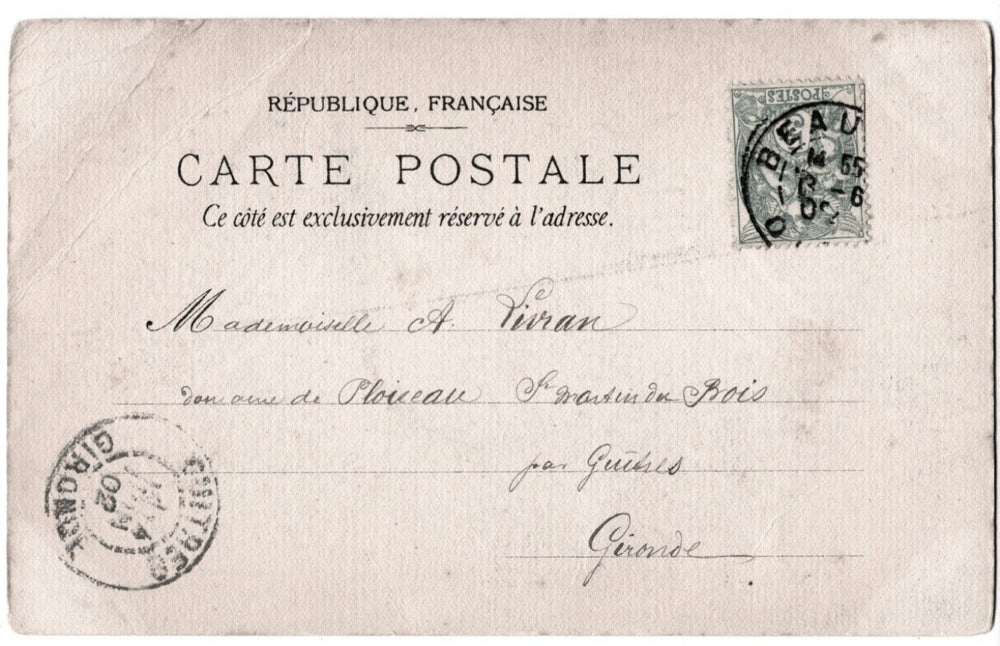 RÉPUBLIQUE, FRANÇAISE
CARTE POSTALE
Ce côté est exclusivement réservé à l'adresse.
POSTES
BEAU
14 55
13 -6
02
Mademoiselle A. Vivran
domaine de Ploiseau St Martin du Bois
par Guîtres
Gironde
GUITRES
GIRONDE
14
02